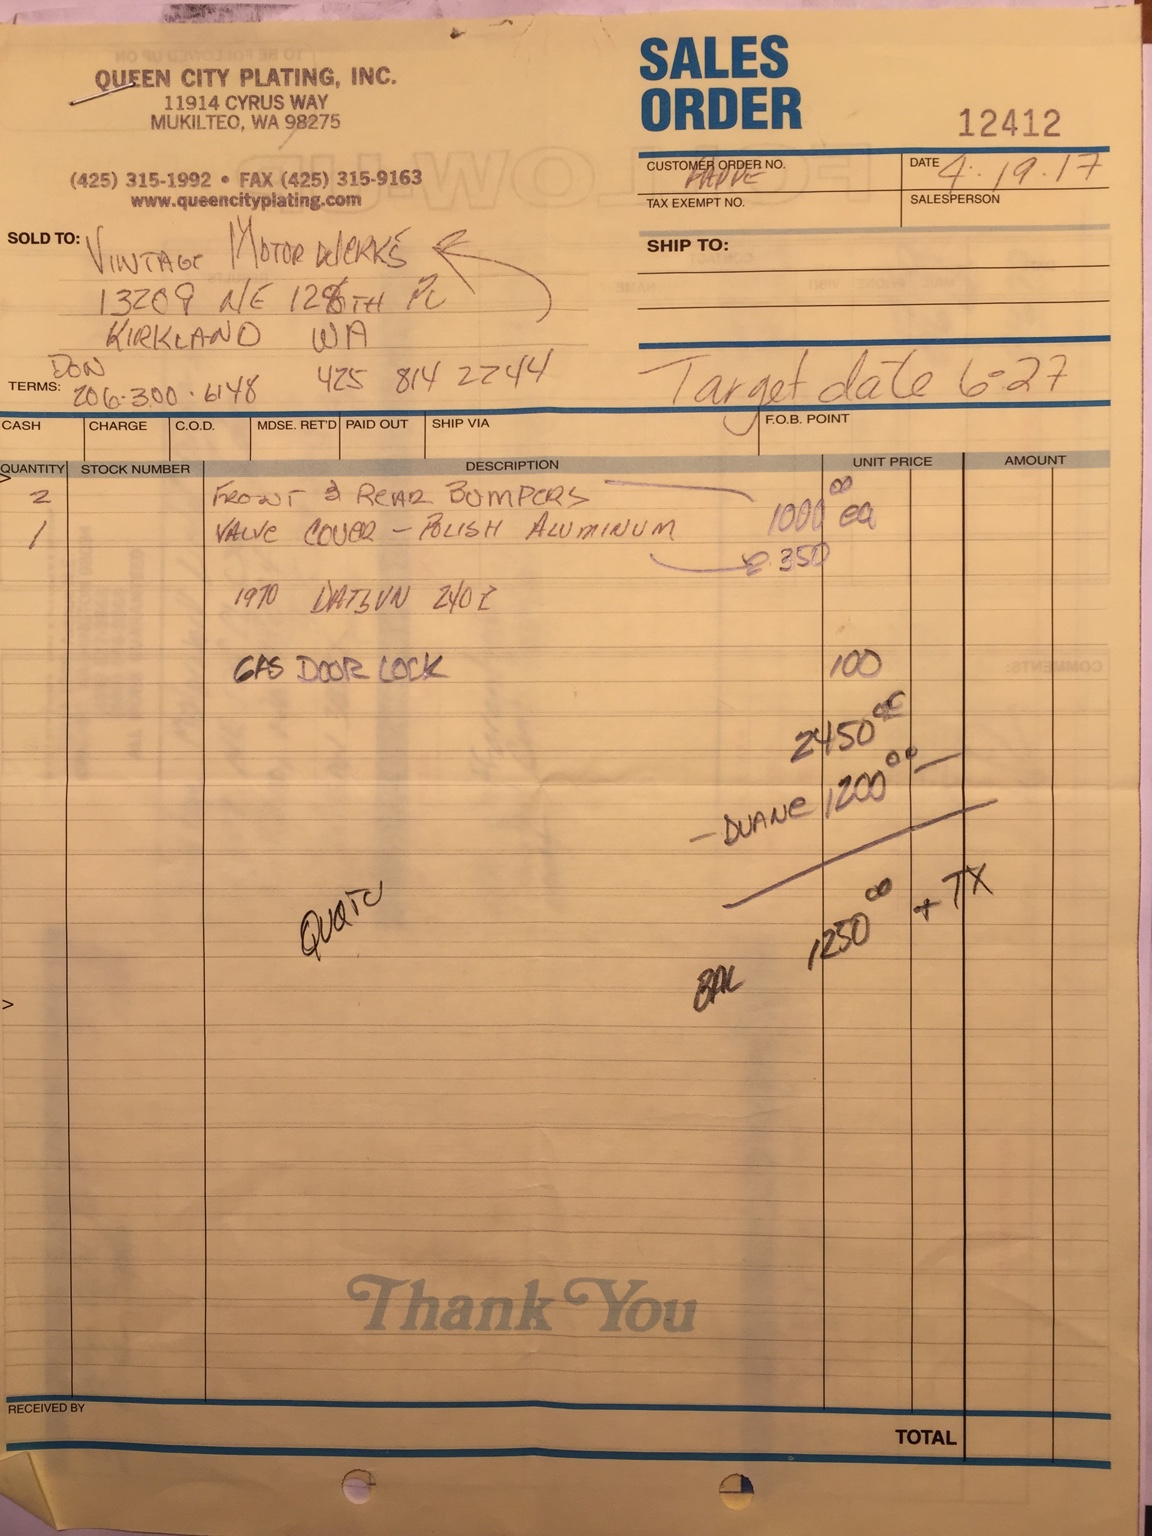 QUEEN CITY PLATING, INC.
11914 CYRUS WAY
MUKILTEO, WA 98275
(425) 315-1992 • FAX (425) 315-9163
www.queencityplating.com
SALES
ORDER
12412
CUSTOMER ORDER NO.
DATE 4.19.17
TAX EXEMPT NO.
SALESPERSON
SOLD TO: VINTAGE MOTOR WERKS
13209 NE 128TH PL
KIRKLAND WA
DON
TERMS: 206.300.6148 425 814 2244
SHIP TO:
Target date 6-27
CASH CHARGE C.O.D. MDSE. RET'D PAID OUT SHIP VIA F.O.B. POINT
QUANTITY STOCK NUMBER DESCRIPTION UNIT PRICE AMOUNT
2 FRONT & REAR BUMPERS 1000 00 ea
1 VALVE COVER - POLISH ALUMINUM
350
1970 DATSUN 240Z
GAS DOOR LOCK 100
2450 00
- DUANE 1200 00
BAL 1250 00 + TX
QUOTE
Thank You
RECEIVED BY
TOTAL